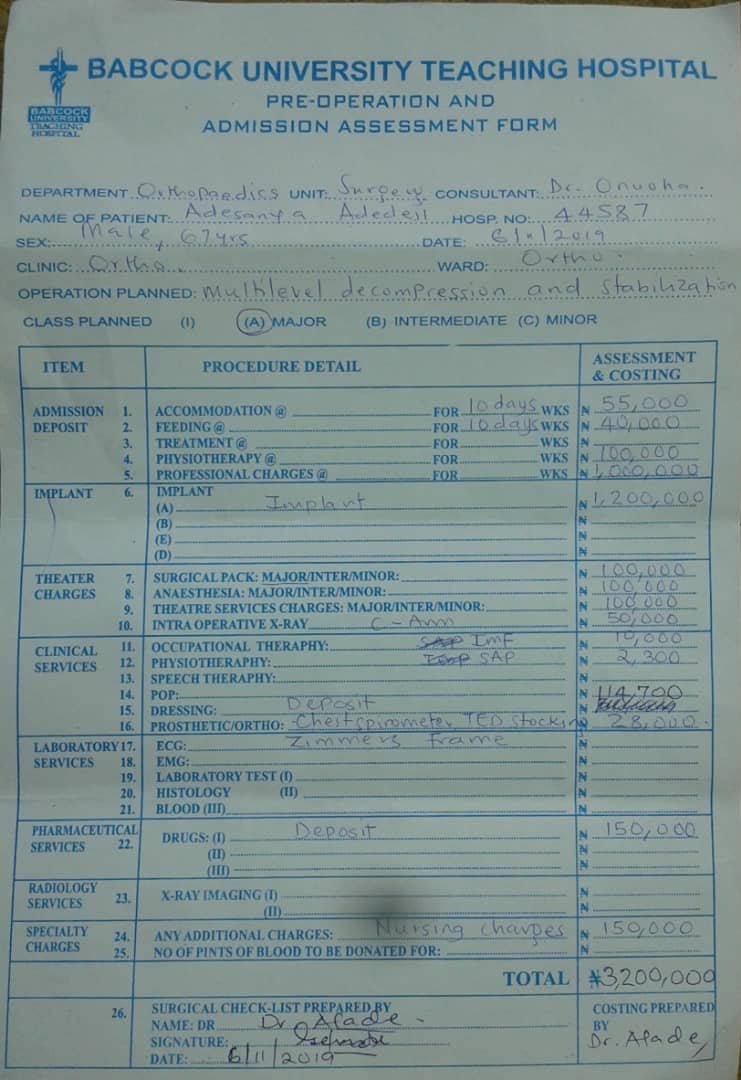 BABCOCK UNIVERSITY TEACHING HOSPITAL
BABCOCK
UNIVERSITY
TEACHING
HOSPITAL
PRE-OPERATION AND
ADMISSION ASSESSMENT FORM
DEPARTMENT Orthopaedics UNIT: Surgery CONSULTANT: Dr. Onuoha.
NAME OF PATIENT: Adesanya Adedeji HOSP. NO: 44587
SEX: Male, 67yrs DATE: 6/11/2019
CLINIC: Ortho. WARD: Ortho.
OPERATION PLANNED: Multilevel decompression and stabilization
CLASS PLANNED (I) (A) MAJOR (B) INTERMEDIATE (C) MINOR
ITEM PROCEDURE DETAIL ASSESSMENT & COSTING
ADMISSION 1. ACCOMMODATION @ FOR 10 days WKS ₦ 55,000
DEPOSIT 2. FEEDING @ FOR 10 days WKS ₦ 40,000
3. TREATMENT @ FOR WKS ₦
4. PHYSIOTHERAPY @ FOR WKS ₦ 100,000
5. PROFESSIONAL CHARGES @ FOR WKS ₦ 1,000,000
IMPLANT 6. IMPLANT
(A) Implant ₦ 1,200,000
(B) ₦
(E) ₦
(D) ₦
THEATER 7. SURGICAL PACK: MAJOR/INTER/MINOR: ₦ 100,000
CHARGES 8. ANAESTHESIA: MAJOR/INTER/MINOR: ₦ 100,000
9. THEATRE SERVICES CHARGES: MAJOR/INTER/MINOR: ₦ 100,000
10. INTRA OPERATIVE X-RAY C-Arm ₦ 50,000
CLINICAL 11. OCCUPATIONAL THERAPHY: SAP IMF ₦ 10,000
SERVICES 12. PHYSIOTHERAPY: SAP ₦ 2,300
13. SPEECH THERAPHY: ₦
14. POP: ₦ 114,700
15. DRESSING: Deposit ₦
16. PROSTHETIC/ORTHO: Chest spirometer TED stocking ₦ 28,000.
LABORATORY 17. ECG: Zimmers Frame ₦
SERVICES 18. EMG: ₦
19. LABORATORY TEST (I) ₦
20. HISTOLOGY (II) ₦
21. BLOOD (III) ₦
PHARMACEUTICAL
SERVICES 22. DRUGS: (I) Deposit ₦ 150,000
(II) ₦
(III) ₦
RADIOLOGY
SERVICES 23. X-RAY IMAGING (I) ₦
(II) ₦
SPECIALTY 24. ANY ADDITIONAL CHARGES: Nursing charges ₦ 150,000
CHARGES 25. NO OF PINTS OF BLOOD TO BE DONATED FOR: ₦
TOTAL ₦3,200,000
26. SURGICAL CHECK-LIST PREPARED BY COSTING PREPARED
NAME: DR Dr Afade. BY
SIGNATURE: Dr. Afade,
DATE: 6/11/2019